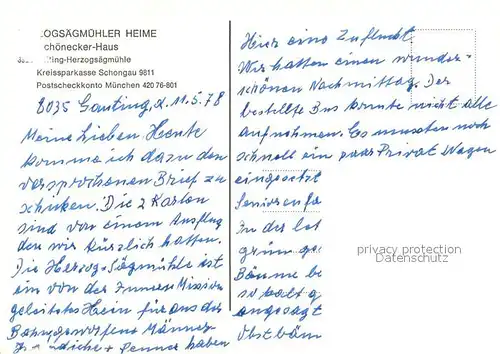 OGSÄGMÜHLER HEIME
chönecker-Haus
ting-Herzogsägmühle
Kreissparkasse Schongau 9811
Postscheckkonto München 420 76-801
8035 Gauting, d. 11.5.78
Meine Lieben Heute
komme ich dazu den
versprochenen Brief zu
schicken. Die 2 Karten
sind von einem Ausflug
den wir kürzlich hatten.
Die Herzog-Sägmühle ist
ein von der Inneren Mission
geleitetes Heim für aus der
Bahn geworfene Männer
haben
Hier eine Zuflucht
Wir hatten einen wunder-
schönen Nachmittag. Der
bestellte Bus konnte nicht alle
aufnehmen. Es mussten noch
schnell ein paar Privat Wagen
eingesetzt
Seniorenfa
In der let
grün ge
Bäume be
so kalt g
angesagt
Obstbäm
privacy protection
Datenschutz